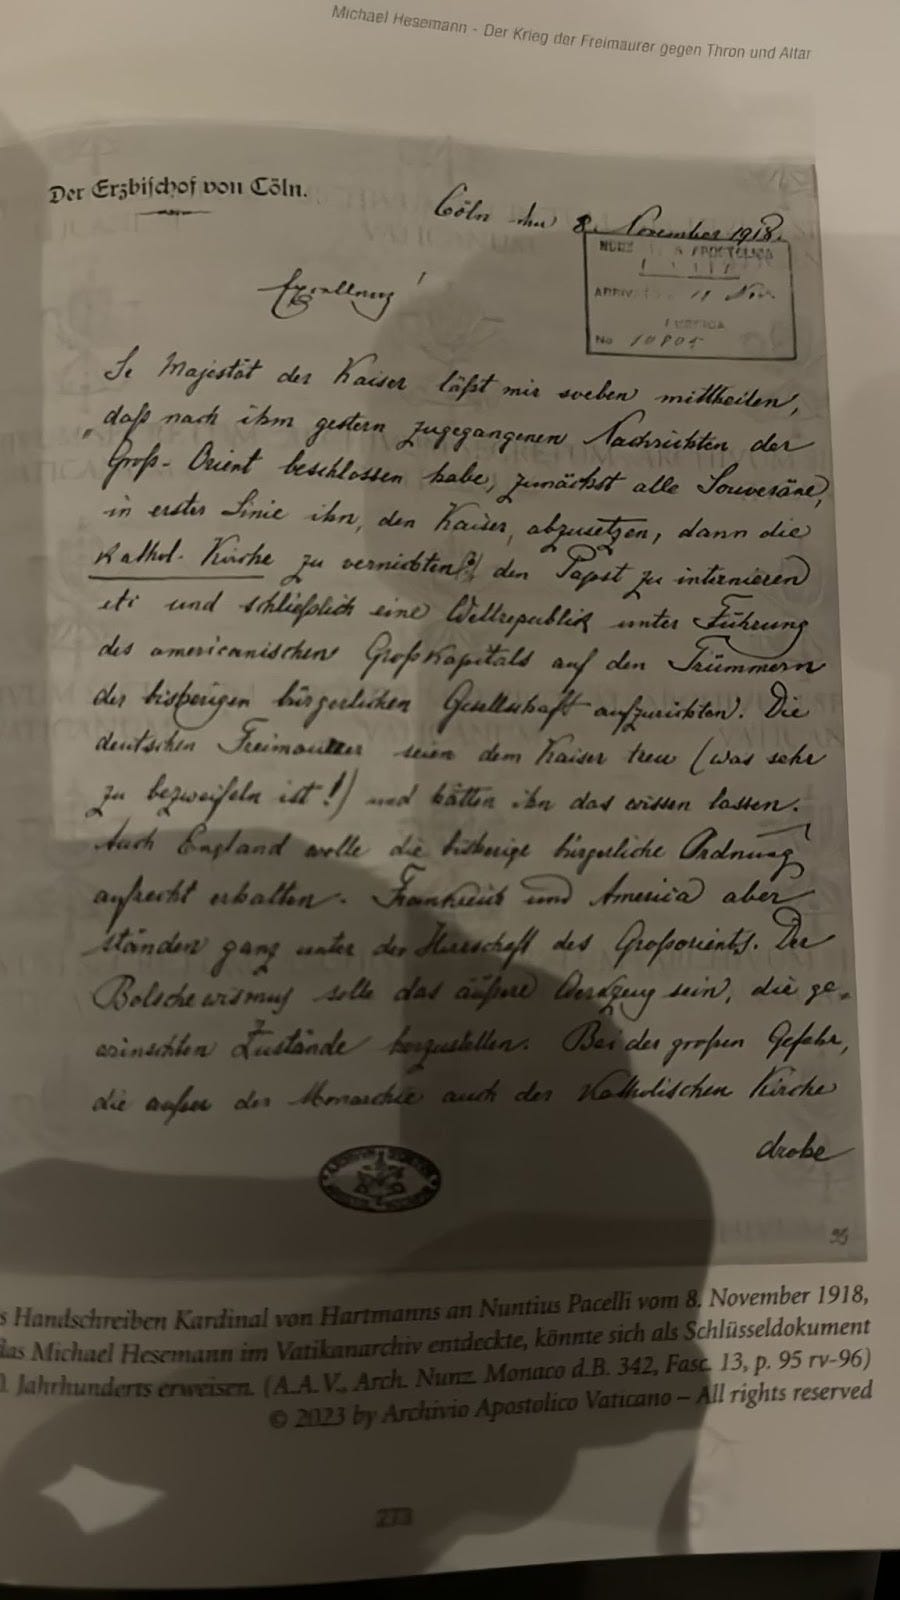 Michael Hesemann - Der Krieg der Freimaurer gegen Thron und Altar
Der Erzbischof von Cöln.
Cöln den 8. November 1918.
ARRIVATO 11 Nov.
No 10805
Excellenz!
Se Majestät der Kaiser läßt mir soeben mittheilen,
daß nach ihm gestern zugegangenen Nachrichten der
Groß-Orient beschlossen habe, zunächst alle Souveräne,
in erster Linie ihn, den Kaiser, abzusetzen, dann die
kathol. Kirche zu vernichten(?) den Papst zu internieren
etc und schließlich eine Weltrepublik unter Führung
des americanischen Großkapitals auf den Trümmern
der bisherigen bürgerlichen Gesellschaft aufzurichten. Die
deutschen Freimaurer seien dem Kaiser treu (was sehr
zu bezweifeln ist!) und hätten ihn das wissen lassen.
Auch England wolle die bisherige bürgerliche Ordnung
aufrecht erhalten. Frankreich und America aber
ständen ganz unter der Herrschaft des Großorients. Der
Bolschewismus solle das äußere Werkzeug sein, die ge-
wünschten Zustände herzustellen. Bei der großen Gefahr,
die außer der Monarchie auch der Katholischen Kirche
drohe
95
s Handschreiben Kardinal von Hartmanns an Nuntius Pacelli vom 8. November 1918,
das Michael Hesemann im Vatikanarchiv entdeckte, könnte sich als Schlüsseldokument
Jahrhunderts erweisen. (A.A.V., Arch. Nunz. Monaco d.B. 342, Fasc. 13, p. 95 rv-96)
© 2023 by Archivio Apostolico Vaticano – All rights reserved
273